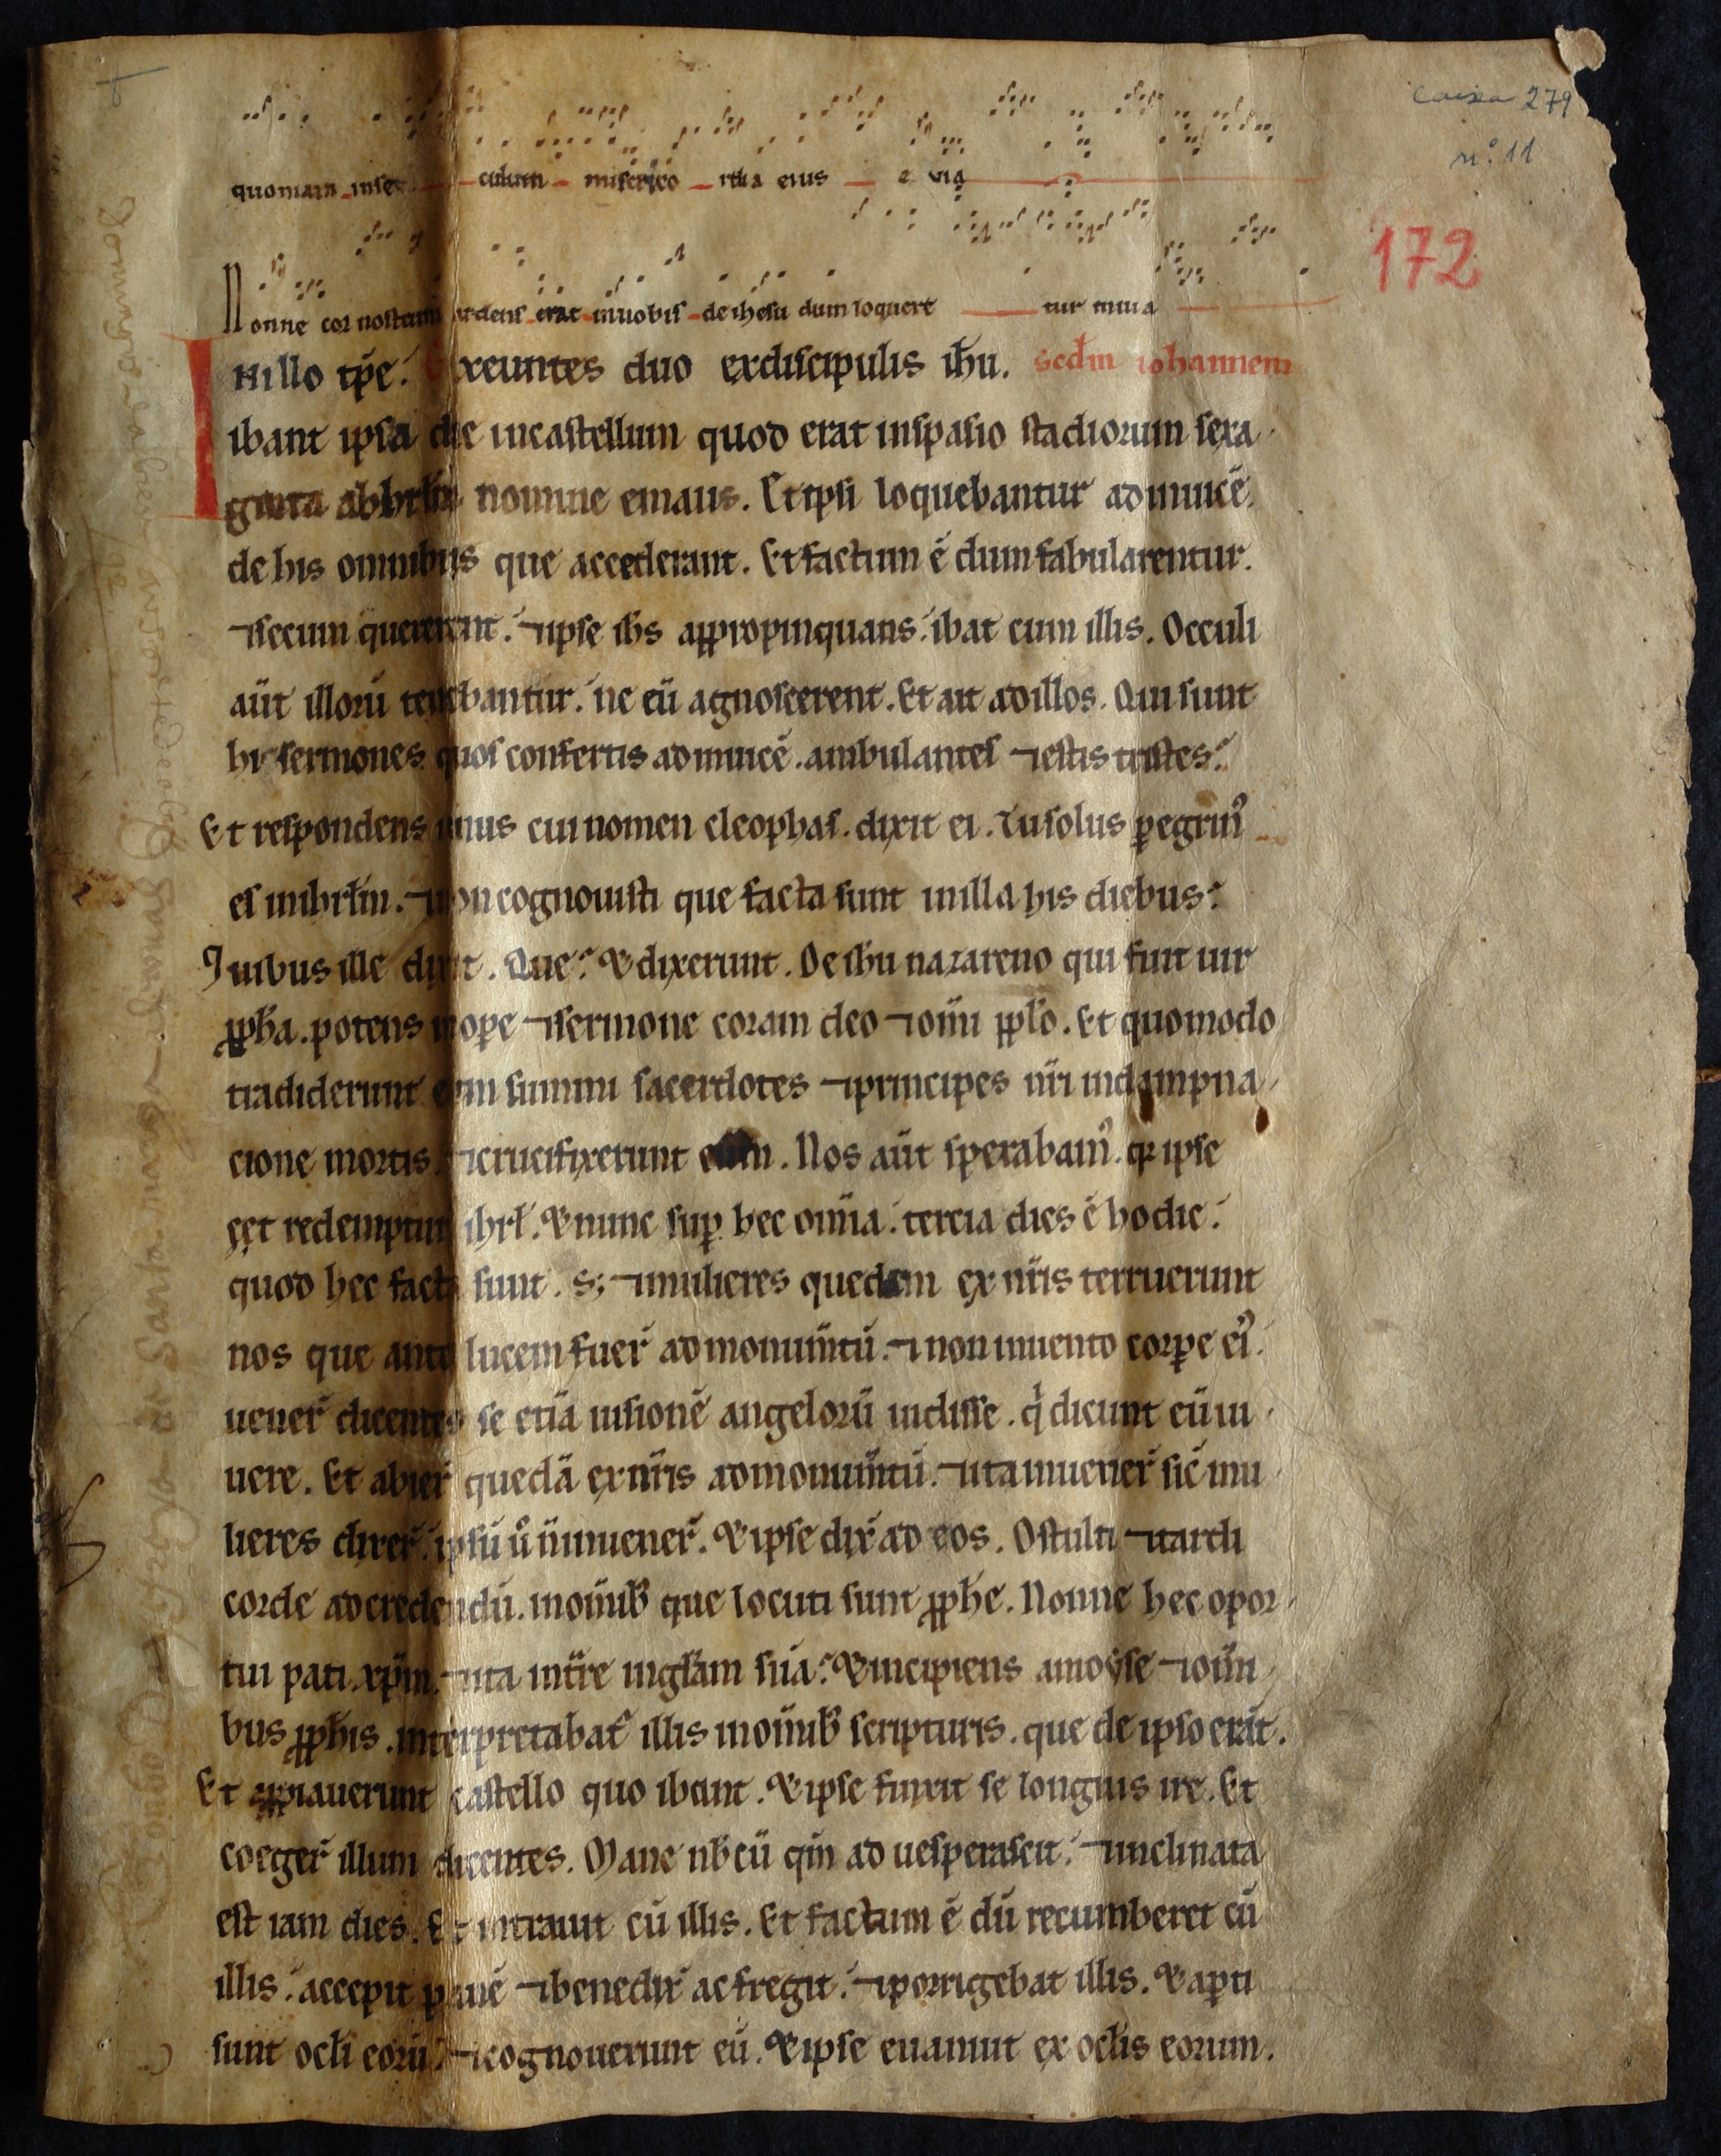 caixa 279
n.º 11
172
quoniam inse culum misericordia eius e uia
Nonne cor nostrum ardens erat innobis de ihesu dum loquere tur inuia
IN illo tp̄e. Exeuntes duo exdiscipulis ih̄u. scdm iohannem
ibant ipsa die incastellum quod erat inspasio stadiorum sexa
ginta abhrl̄m nomine emaus. Et ipsi loquebantur adinuicē.
de his omnibus que accederant. Et factum ē dum fabularentur.
⁊ secum quererent. ⁊ ipse ih̄s appropinquans ibat cum illis. Occuli
aūt illorū tenebantur. ne eū agnoscerent. Et ait adillos. Qui sunt
hi sermones quos confertis adinuicē. ambulantes ⁊ estis tristes.
Et respondens unus cui nomen cleophas. dixit ei. Tu solus peregrin᷒
es inihrl̄m. ⁊ non cognouisti que facta sunt inilla his diebus.
Quibus ille dixit. Que. & dixerunt. De ih̄u nazareno qui fuit uir
pph̄a. potens inope ⁊ sermone coram deo ⁊ om̄i ppl̄o. Et quomodo
tradiderunt eum summi sacerdotes ⁊ principes nr̄i indampna
cione mortis. ⁊ crucifixerunt eum. Nos aūt sperabam᷒. qr ipse
eēt redempturus ihrl̄. & nunc sup hec om̄ia. tercia dies ē hodie.
quod hec facta sunt. S; ⁊ mulieres quedam ex nr̄is terruerunt
nos que ante lucem fuer̄ ad monum̄tū. ⁊ non inuento corpe ei᷒.
uener̄ dicentes se etiā uisionē angelorū uidisse. q̇ dicunt eū ui
uere. Et abier̄ quedā ex nr̄is ad monum̄tū. ⁊ ita inuener̄ sic̄ mu
lieres dixer̄. ipsū ū n̄ inuener̄. & ipse dix̄ ad eos. O stulti ⁊ tardi
corde ad credendū. inom̄ib᷒ que locuti sunt pph̄e. Nonne hec opor
tui pati. xp̄m. ⁊ ita int̄re inglā̄m suā. & incipiens a moyse ⁊ om̄i
bus pph̄is. interpretabat᷒ illis inom̄ib᷒ scripturis. que de ipso erāt.
Et appiauerunt castello quo ibant. & ipse finxit se longius ire. Et
coeger̄ illum dicentes. Mane nb̄cū qm̄ ad uesperascit. ⁊ inclinata
est iam dies. Et intrauit cū illis. Et factum ē dū recumberet cū
illis. accepit panē ⁊ benedix̄ ac fregit. ⁊ porrigebat illis. & apti
sunt ocl̄i eorū. ⁊ cognouerunt eū. & ipse euanuit ex ocl̄is eorum.